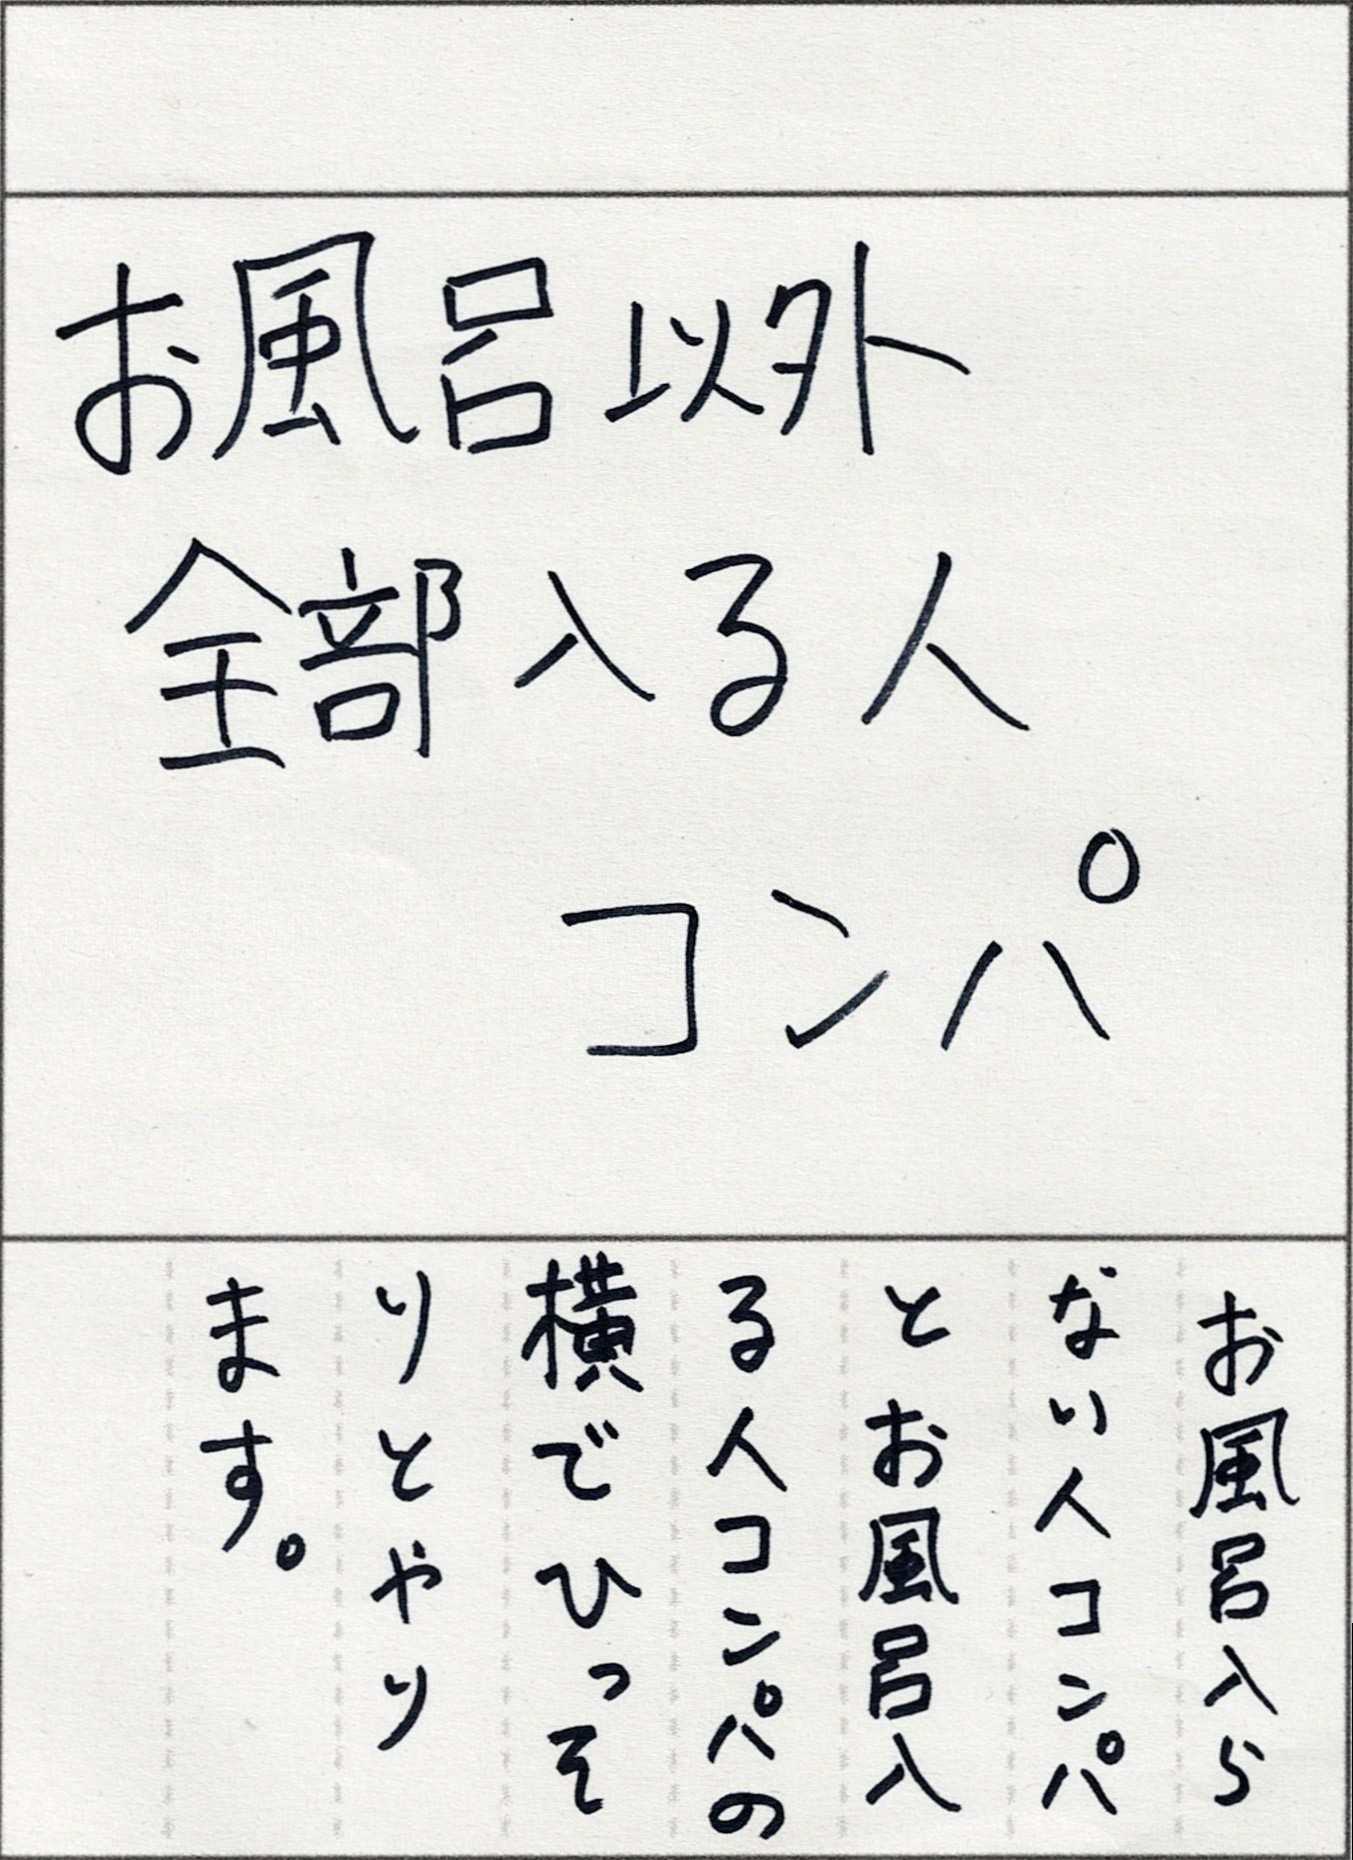 お風呂以外
全部入る人
コンパ
お風呂入ら
ない人コンパ
とお風呂入
る人コンパの
横でひっそ
りとやり
ます。